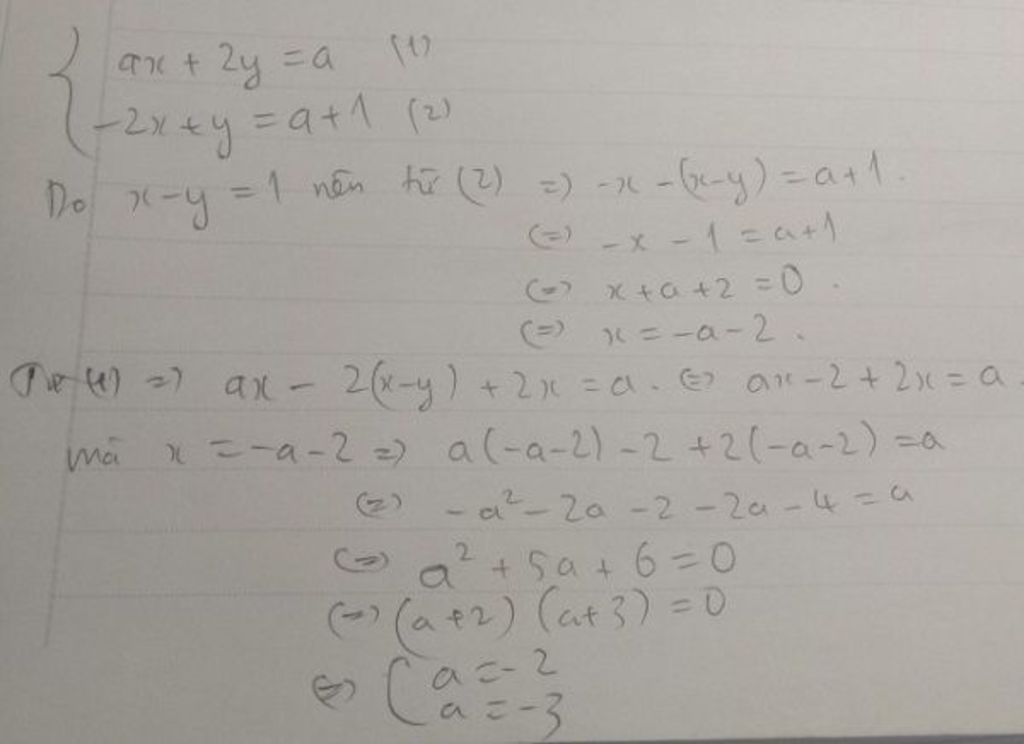 ax + 2y = a (1)
-2x + y = a + 1 (2)
Do x - y = 1 nên từ (2) => -x - (x-y) = a + 1.
(=) -x - 1 = a + 1
(=) x + a + 2 = 0.
(=) x = -a - 2.
Từ (1) => ax - 2(x-y) + 2x = a. (=) ax - 2 + 2x = a.
mà x = -a - 2 => a(-a-2) - 2 + 2(-a-2) = a
(=) -a² - 2a - 2 - 2a - 4 = a
(=) a² + 5a + 6 = 0
(=) (a+2) (a+3) = 0
(=) [ a = -2
a = -3